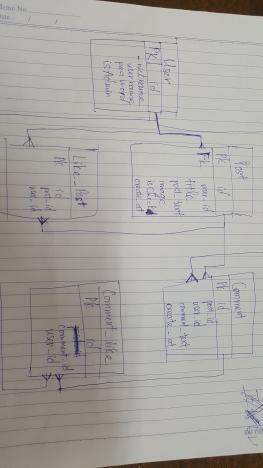 Memo No.
Date / /
User
PK id
username
password
isAdmin
Post
PK id
user_id
title
post_text
image
create_at
Like_Post
PK id
post_id
user_id
Comment
PK id
post_id
user_id
comment_text
create_at
Comment like
PK id
comment_id
user_id